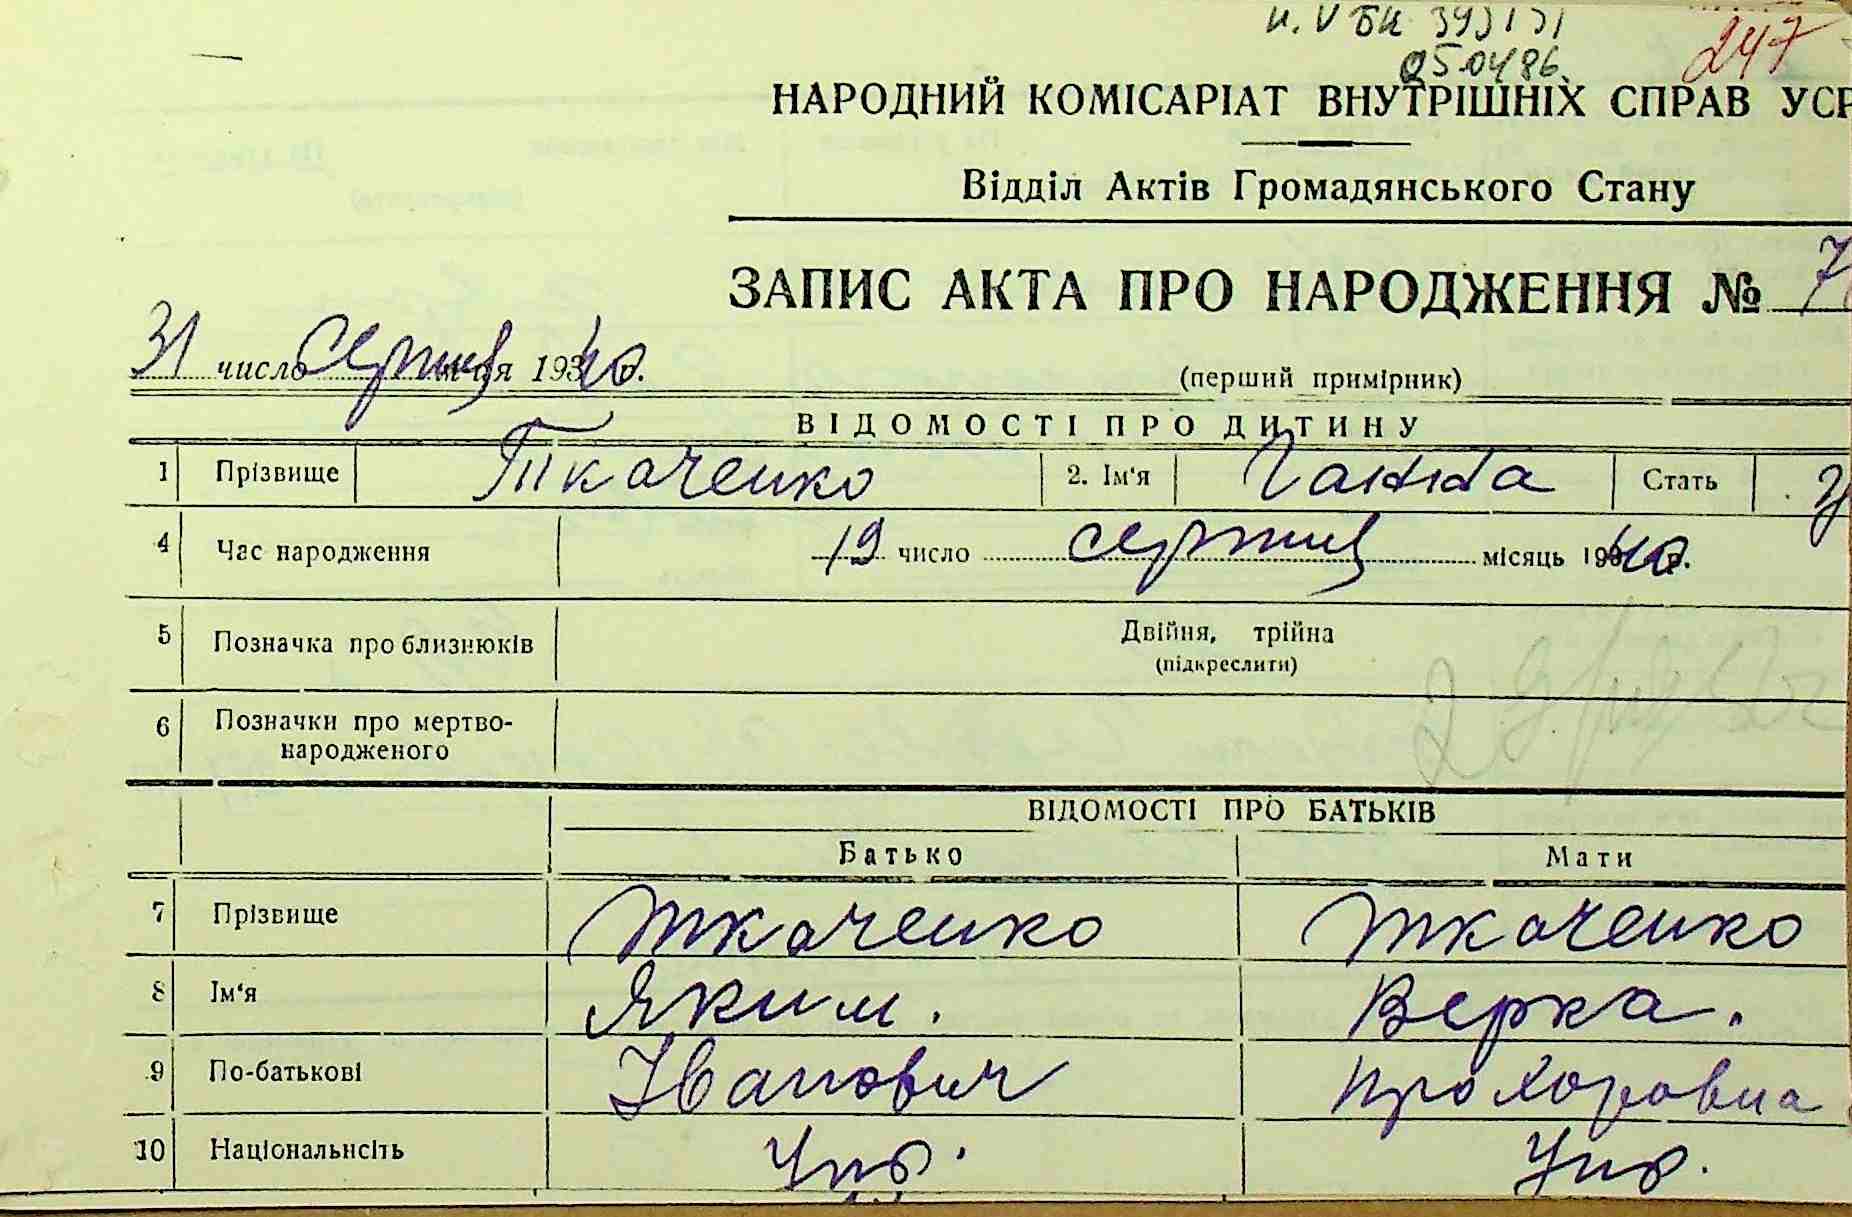 и. V БК 393131
247
05.04.86
НАРОДНИЙ КОМІСАРІАТ ВНУТРІШНІХ СПРАВ УСР
Відділ Актів Громадянського Стану
ЗАПИС АКТА ПРО НАРОДЖЕННЯ № 7
31 число серпня м-ця 1940 р.
(перший примірник)
ВІДОМОСТІ ПРО ДИТИНУ
1 Прізвище Ткаченко 2. Ім'я Ганна Стать
4 Час народження 19 число серпня місяць 1940 р.
5 Позначка про близнюків Двійня, трійна
(підкреслити)
6 Позначки про мертво-
народженого
ВІДОМОСТІ ПРО БАТЬКІВ
Батько Мати
7 Прізвище Ткаченко Ткаченко
8 Ім'я Яким. Верка.
9 По-батькові Іванович Прохоровна
10 Національнсіть Укр. Укр.